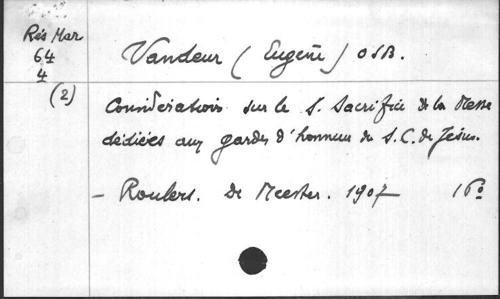 Rés Mar
64
4
(2)
Vandeur (Eugène) OSB.
Considérations sur le S. Sacrifice de la Messe
dédiées aux gardes d'honneur du S. C. de Jésus.
- Roulers. De Meester. 1907 16º